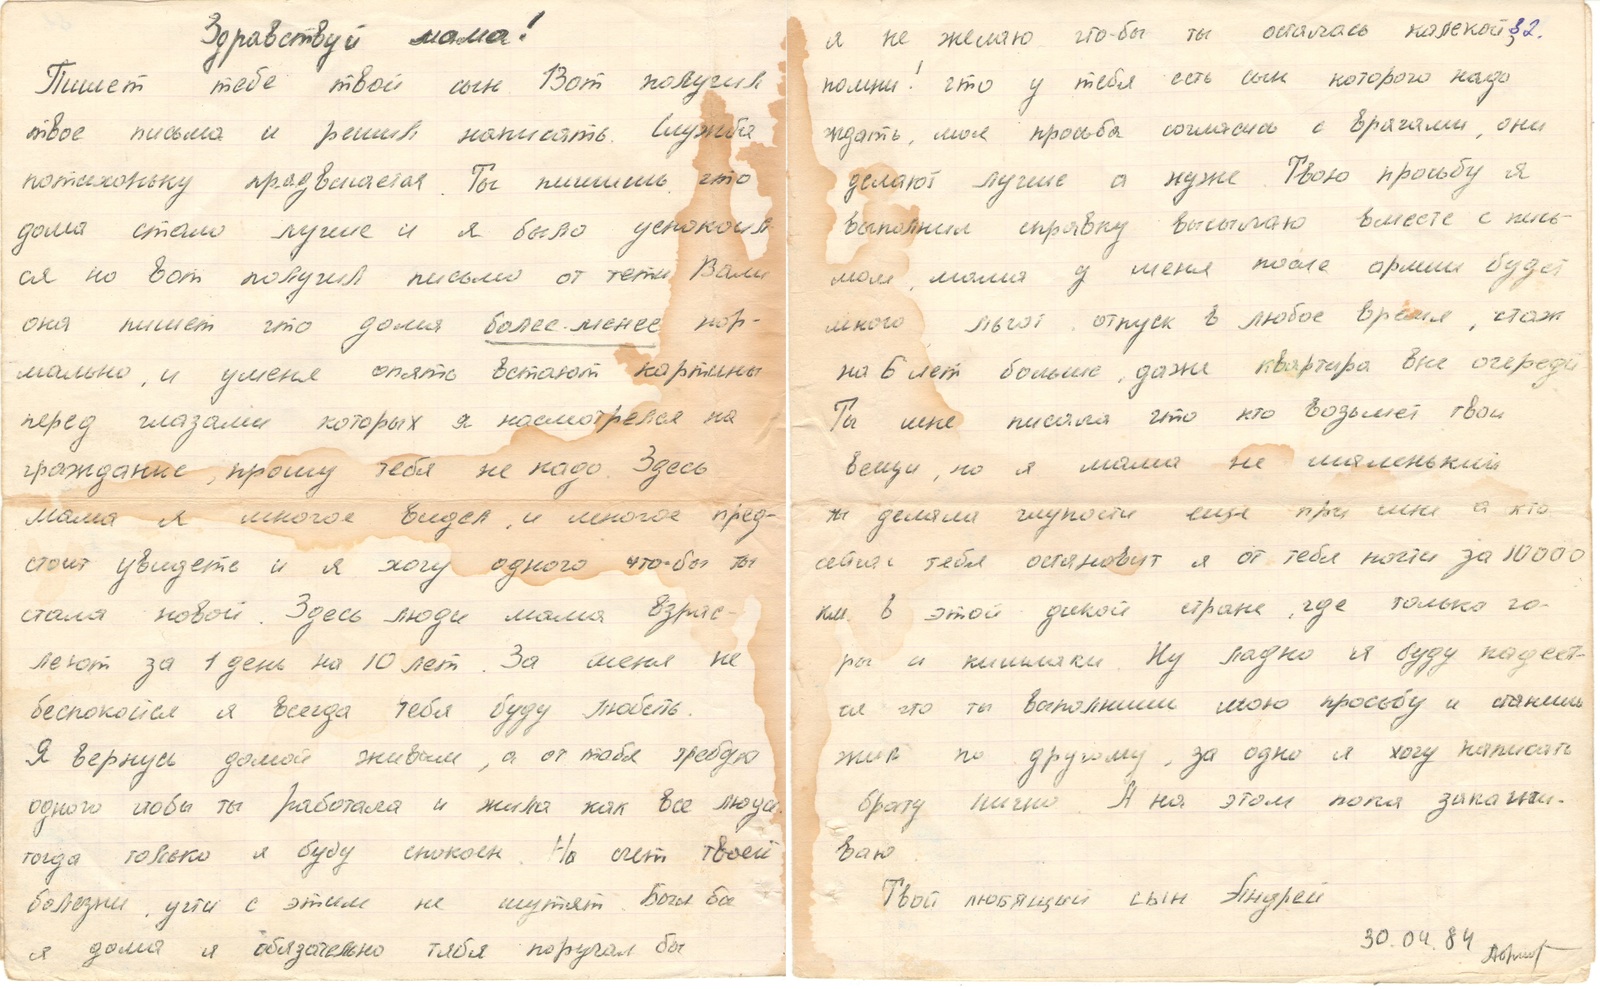 Здравствуй мама!
Пишет тебе твой сын Вот получил
твое письма и решил написать. Служба
потихоньку продвигается. Ты пишешь что
дома стало лучше и я было успокоил
ся но вот получил письмо от тети Вали
она пишет что дома более-менее нор-
мально, и уменя опять встают картины
перед глазами которых я насмотрелся на
гражданке, прошу тебя не надо. Здесь
мама я многое видел, и многое пред-
стоит увидеть и я хочу одного что-бы ты
стала новой. Здесь люди мама взрас-
леют за 1 день на 10 лет. За меня не
беспокойся я всегда тебя буду любить.
Я вернусь домой живым, а от тебя требую
одного чтобы ты работала и жила как все люди.
тогда только я буду спокоен. На счет твоей
болезни, учти с этим не шутят. Был бы
я дома я обязательно тебя поругал бы
я не желаю что-бы ты осталась калекой, 32.
помни! что у тебя есть сын которого надо
ждать, моя просьба согласись с врачами, они
делают лучше а нуже. Твою просьбу я
выполнил справку высылаю вместе с пись-
мом, мама у меня после армии будет
много льгот. отпуск в любое время, стаж
на 6 лет больше, даже квартира вне очереди
Ты мне писала что кто возьмет твои
вещи, но я мама не маленький
ты делала глупости еще при мне а кто
сейчас тебя остановит я от тебя почти за 10000
км. в этой дикой стране, где только го-
ры и кишлаки. Ну ладно я буду надеят-
ся что ты выполнишь мою просьбу и станешь
жить по другому, за одно я хочу написать
брату лично А на этом пока заканчи-
ваю
Твой любящий сын Андрей
30.04.84